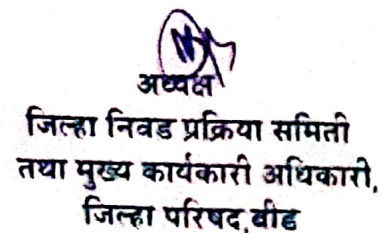 अध्यक्ष
जिल्हा निवड प्रक्रिया समिती
तथा मुख्य कार्यकारी अधिकारी,
जिल्हा परिषद,बीड